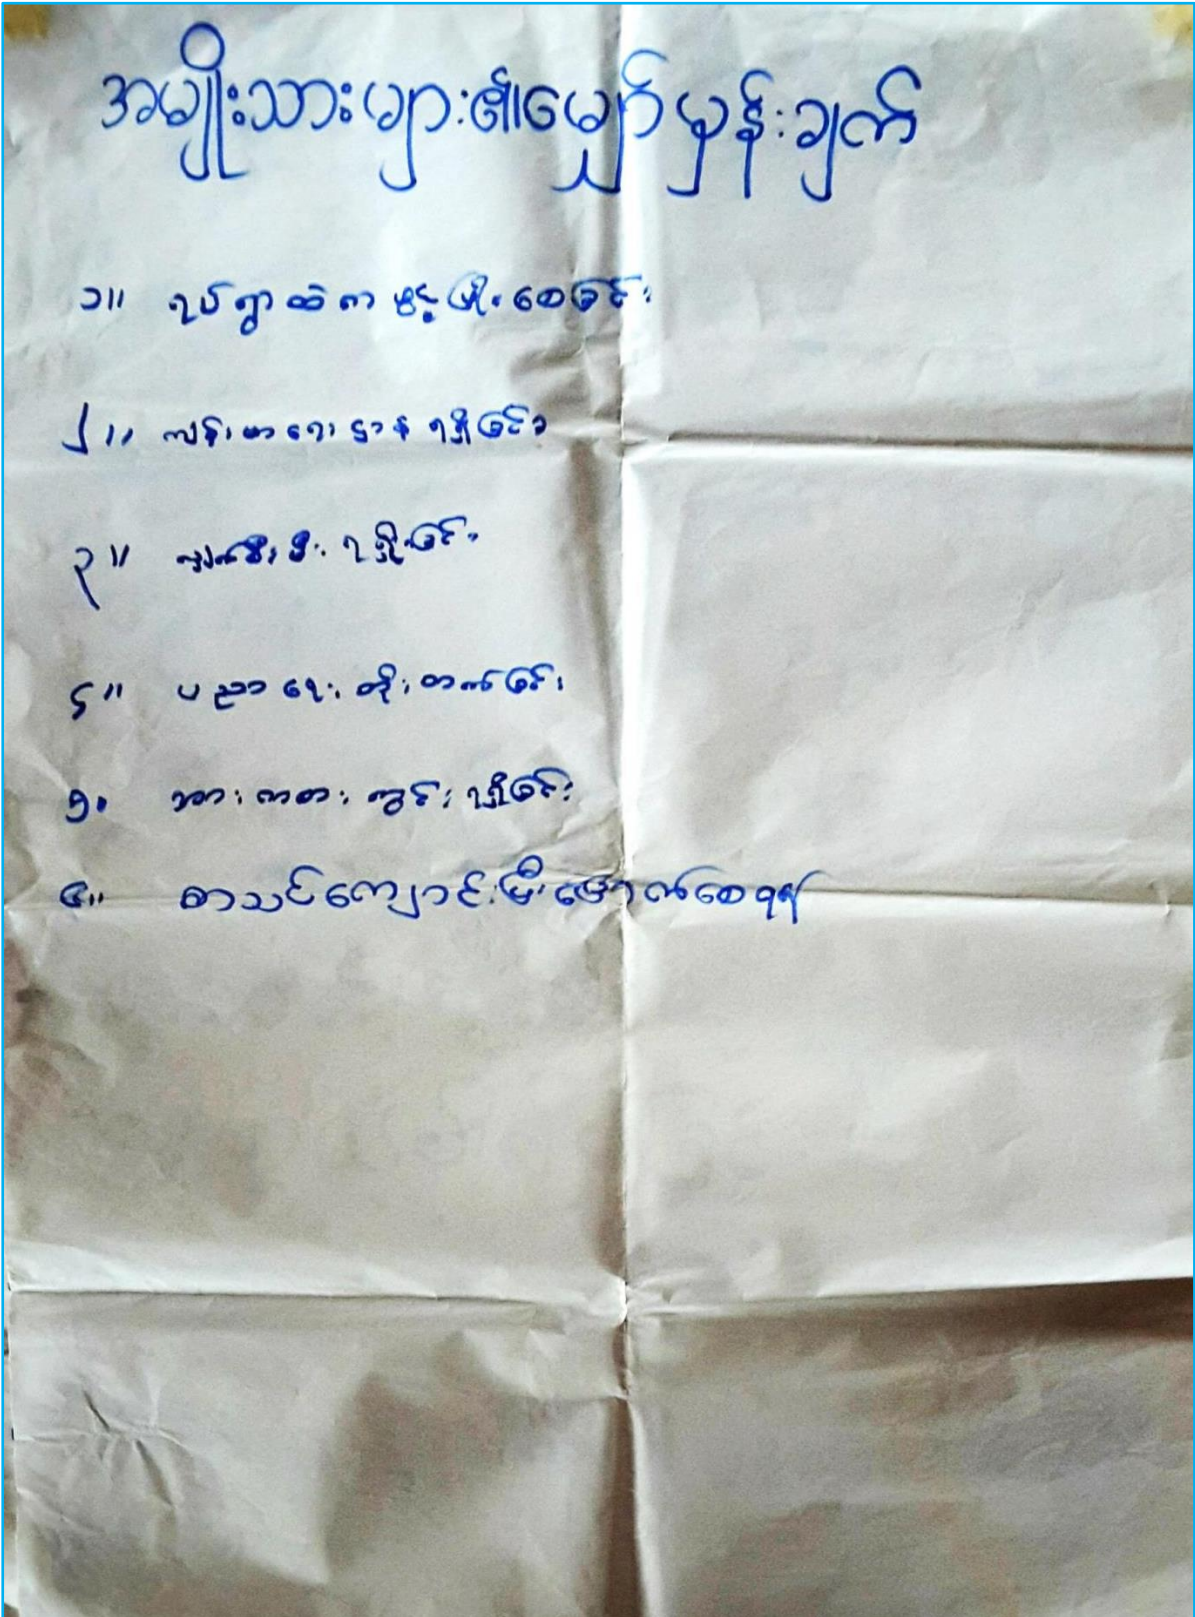 အမျိုးသားများ၏မျှော်မှန်းချက်
၁။ ရပ်ရွာထဲကဖွံ့ဖြိုးစေခြင်း
၂။ ကျန်းမာရေးဌာနရရှိခြင်း
၃။ လျှပ်စီးမီးရရှိခြင်း
၄။ ပညာရေးတိုးတက်ခြင်း
၅။ အားကစားကွင်းရရှိခြင်း
၆။ စာသင်ကျောင်းမီးမောက်စေရန်